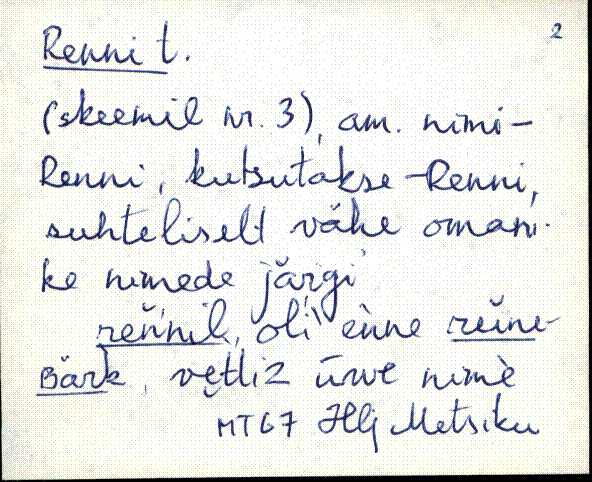 2
Renni t.
(skeemil nr. 3), am. nimi -
Renni, kutsutakse - Renni,
suhteliselt vähe omani-
ke nimede järgi
ren̆'nil, oli' ènne reùne-
Bärk, vęttiz ūwe nimè
MT67 Hlj Metsiku